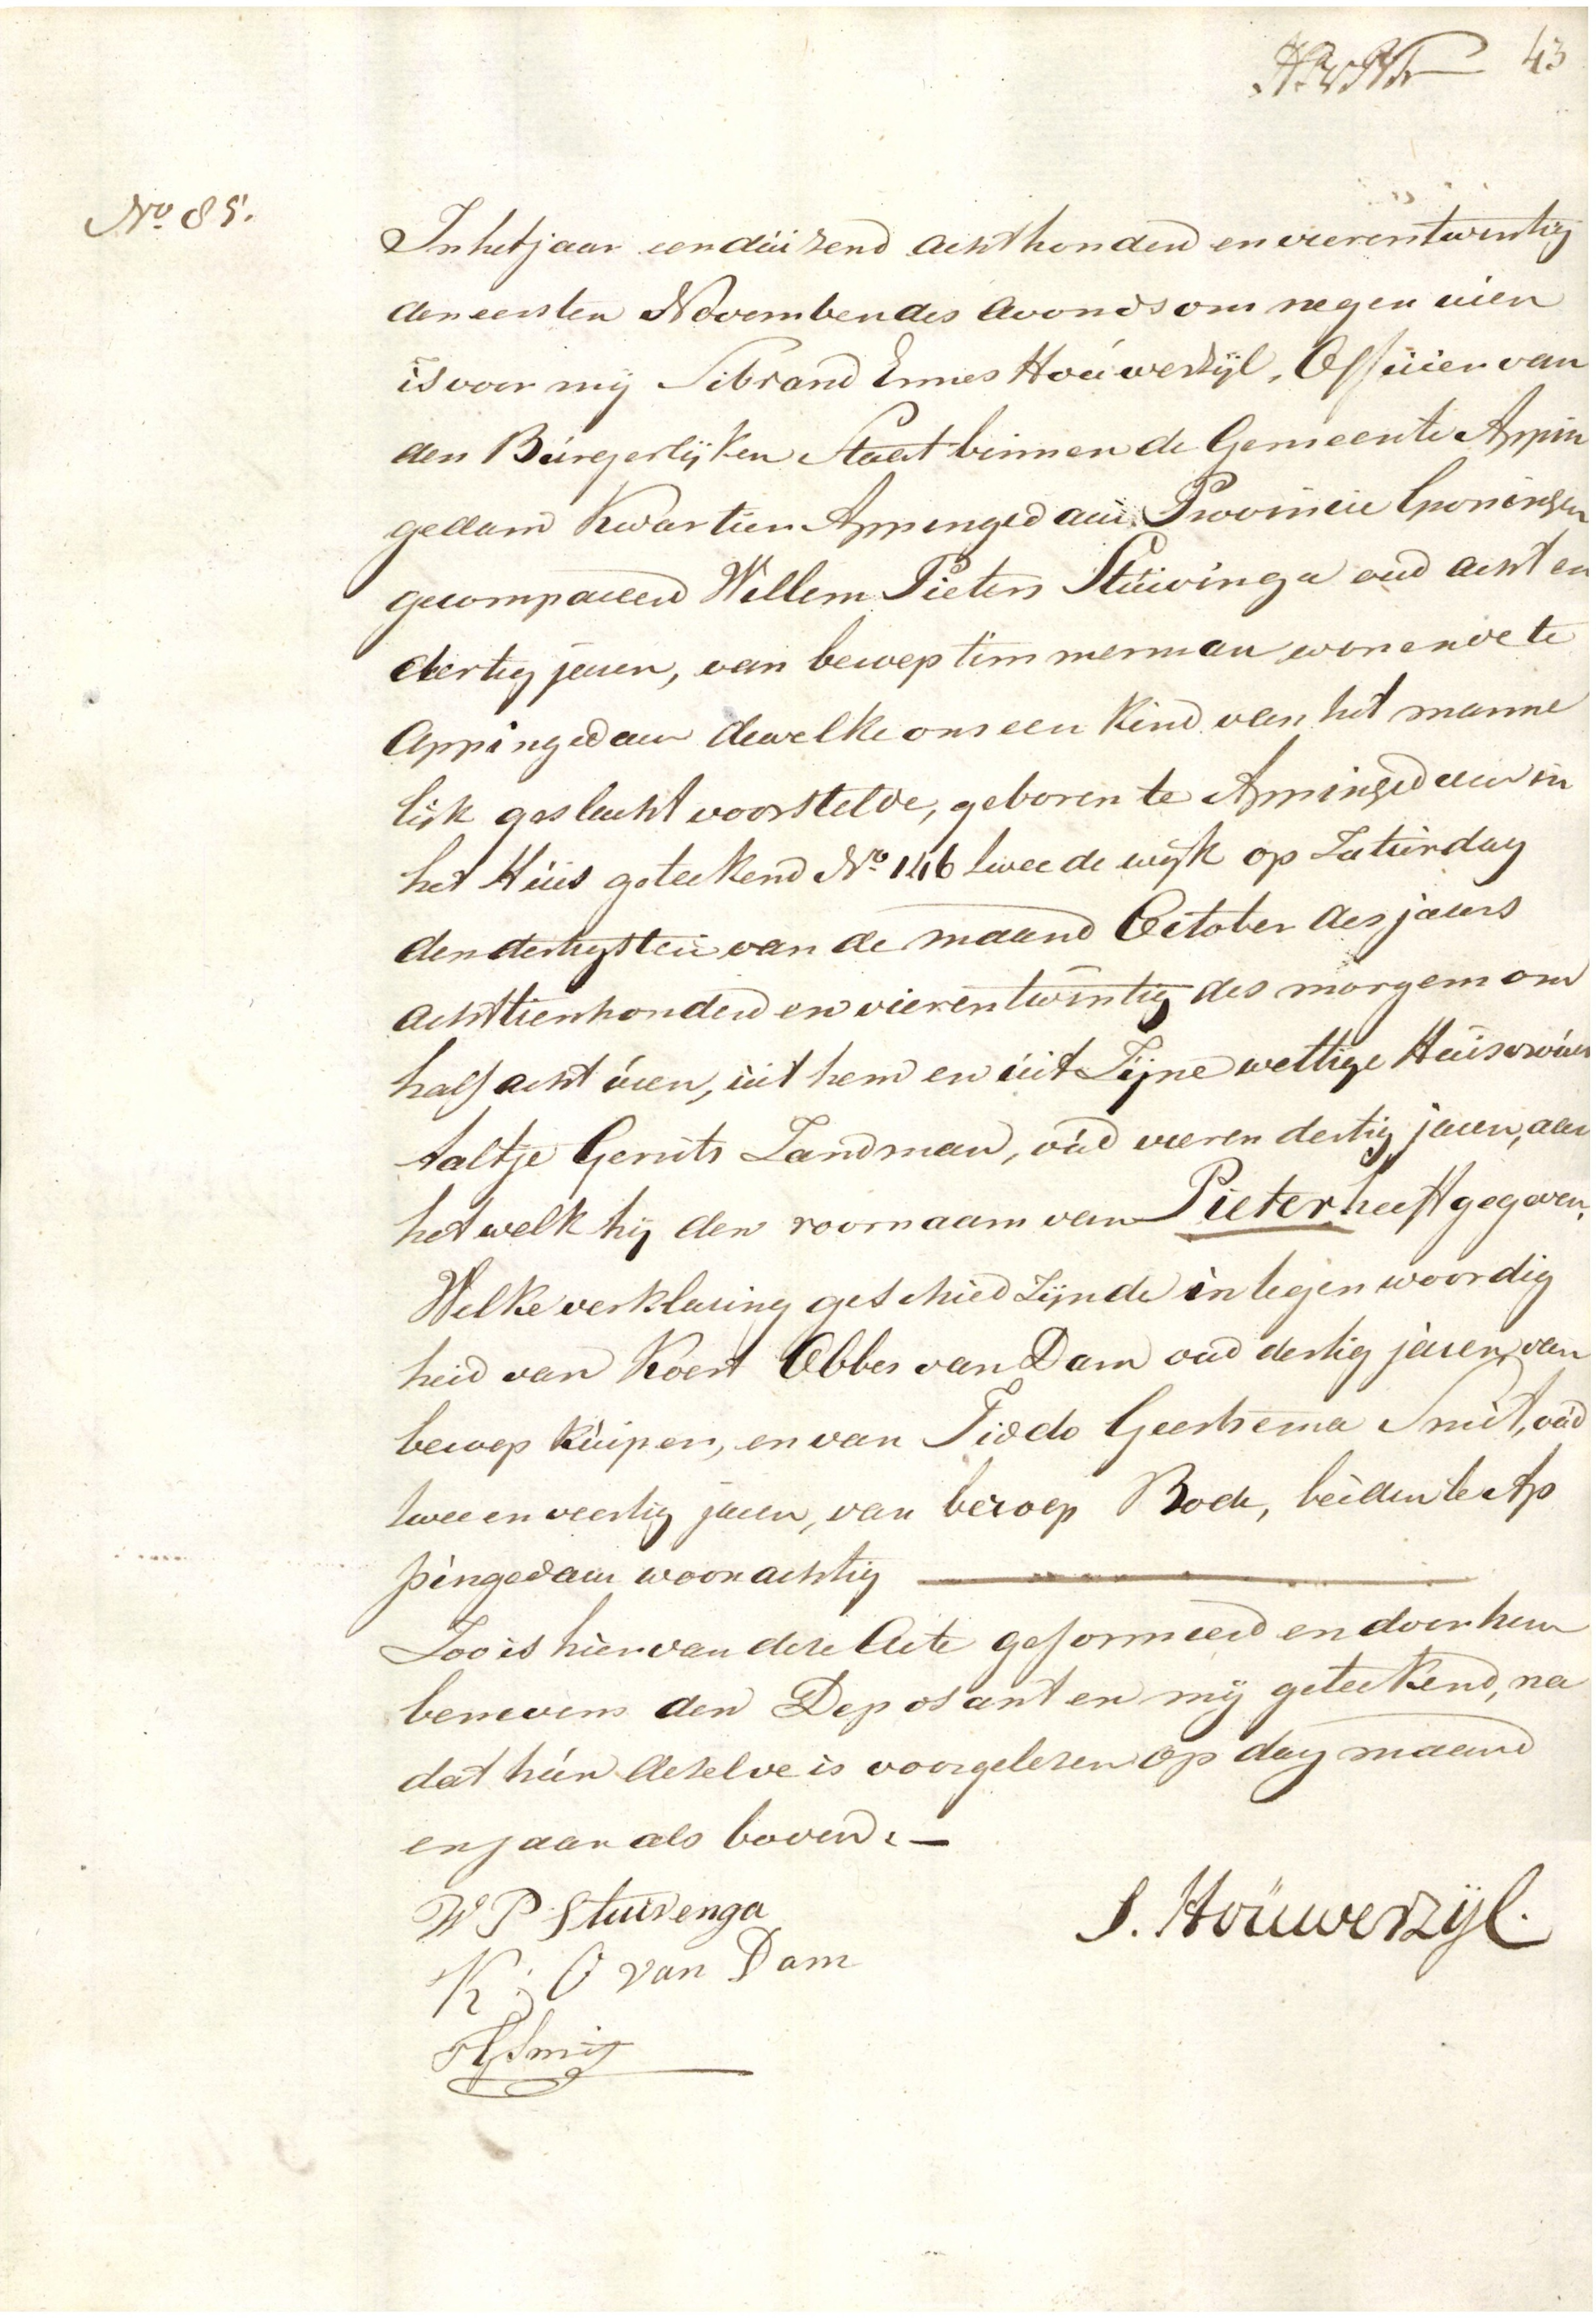 43
No. 85.
In het jaar eenduizend achthonderd en vierentwintig
den eersten November des avonds om negen uren
is voor mij Sibrand Ennes Houwerzijl, Officier van
den Burgerlijken Staat binnen de Gemeente Appin
gedam Kwartier Appingedam Provincie Groningen
gecompareerd Willem Pieters Stuivinga oud acht en
dertig jaren, van beroep timmerman wonende te
Appingedam dewelke ons een Kind van het manne
lijk geslacht voorstelde, geboren te Appingedam in
het Huis geteekend No. 146 tweede wijk op Saturdag
den dertigsten van de maand October des jaars
achttienhonderd en vierentwintig des morgens om
half acht uren, uit hem en uit Zijne wettige Huisvrouw
Aaltje Gerrits Landman, oud vieren dertig jaren, aan
het welk hij den voornaam van Pieter heeft gegeven.
Welke verklaring geschied zijnde in tegenwoordig
heid van Koert Obbes van Dam oud dertig jaren, van
beroep Kuiper, en van Fiddo Geertsema Smit, oud
twee en veertig jaren, van beroep Bode, beiden te Ap
pingedam woonachtig
Zoo is hier van deze Acte geformeerd en door hun
benevens den Deposant en mij geteekend, na
dat hun dezelve is voorgelezen op dag maand
en jaar als boven. —
W P Stuivenga
S. Houwerzijl.
K: O van Dam
FGSmit